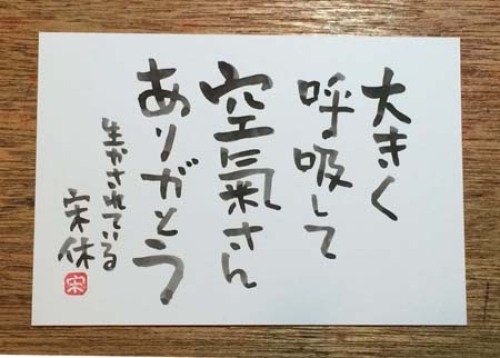 大きく
呼吸して
空氣さん
ありがとう
生かされている
宋休
宋